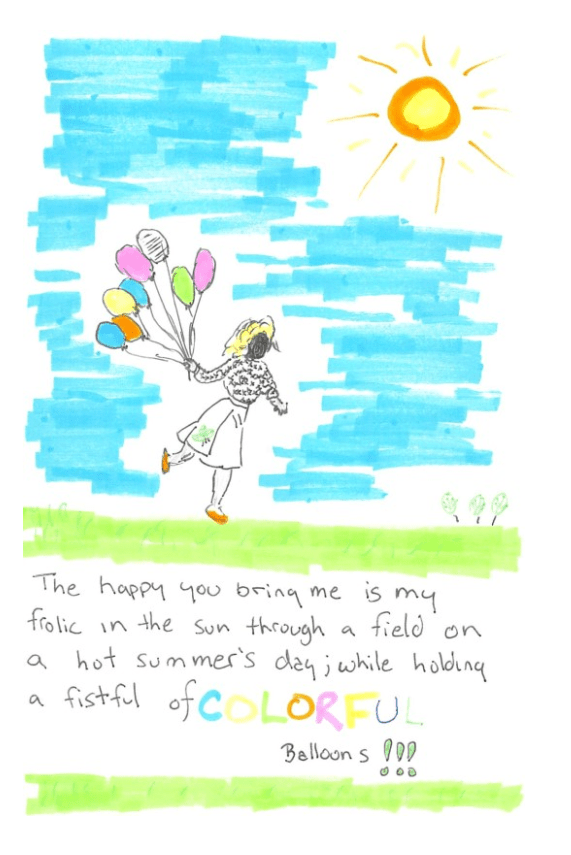 The happy you bring me is my
frolic in the sun through a field on
a hot summer's day; while holding
a fistful of COLORFUL
Balloons !!!